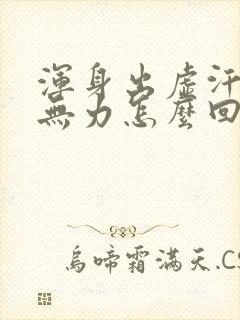 渾身出虛汗
無力怎麼回
烏啼霜滿天.CS